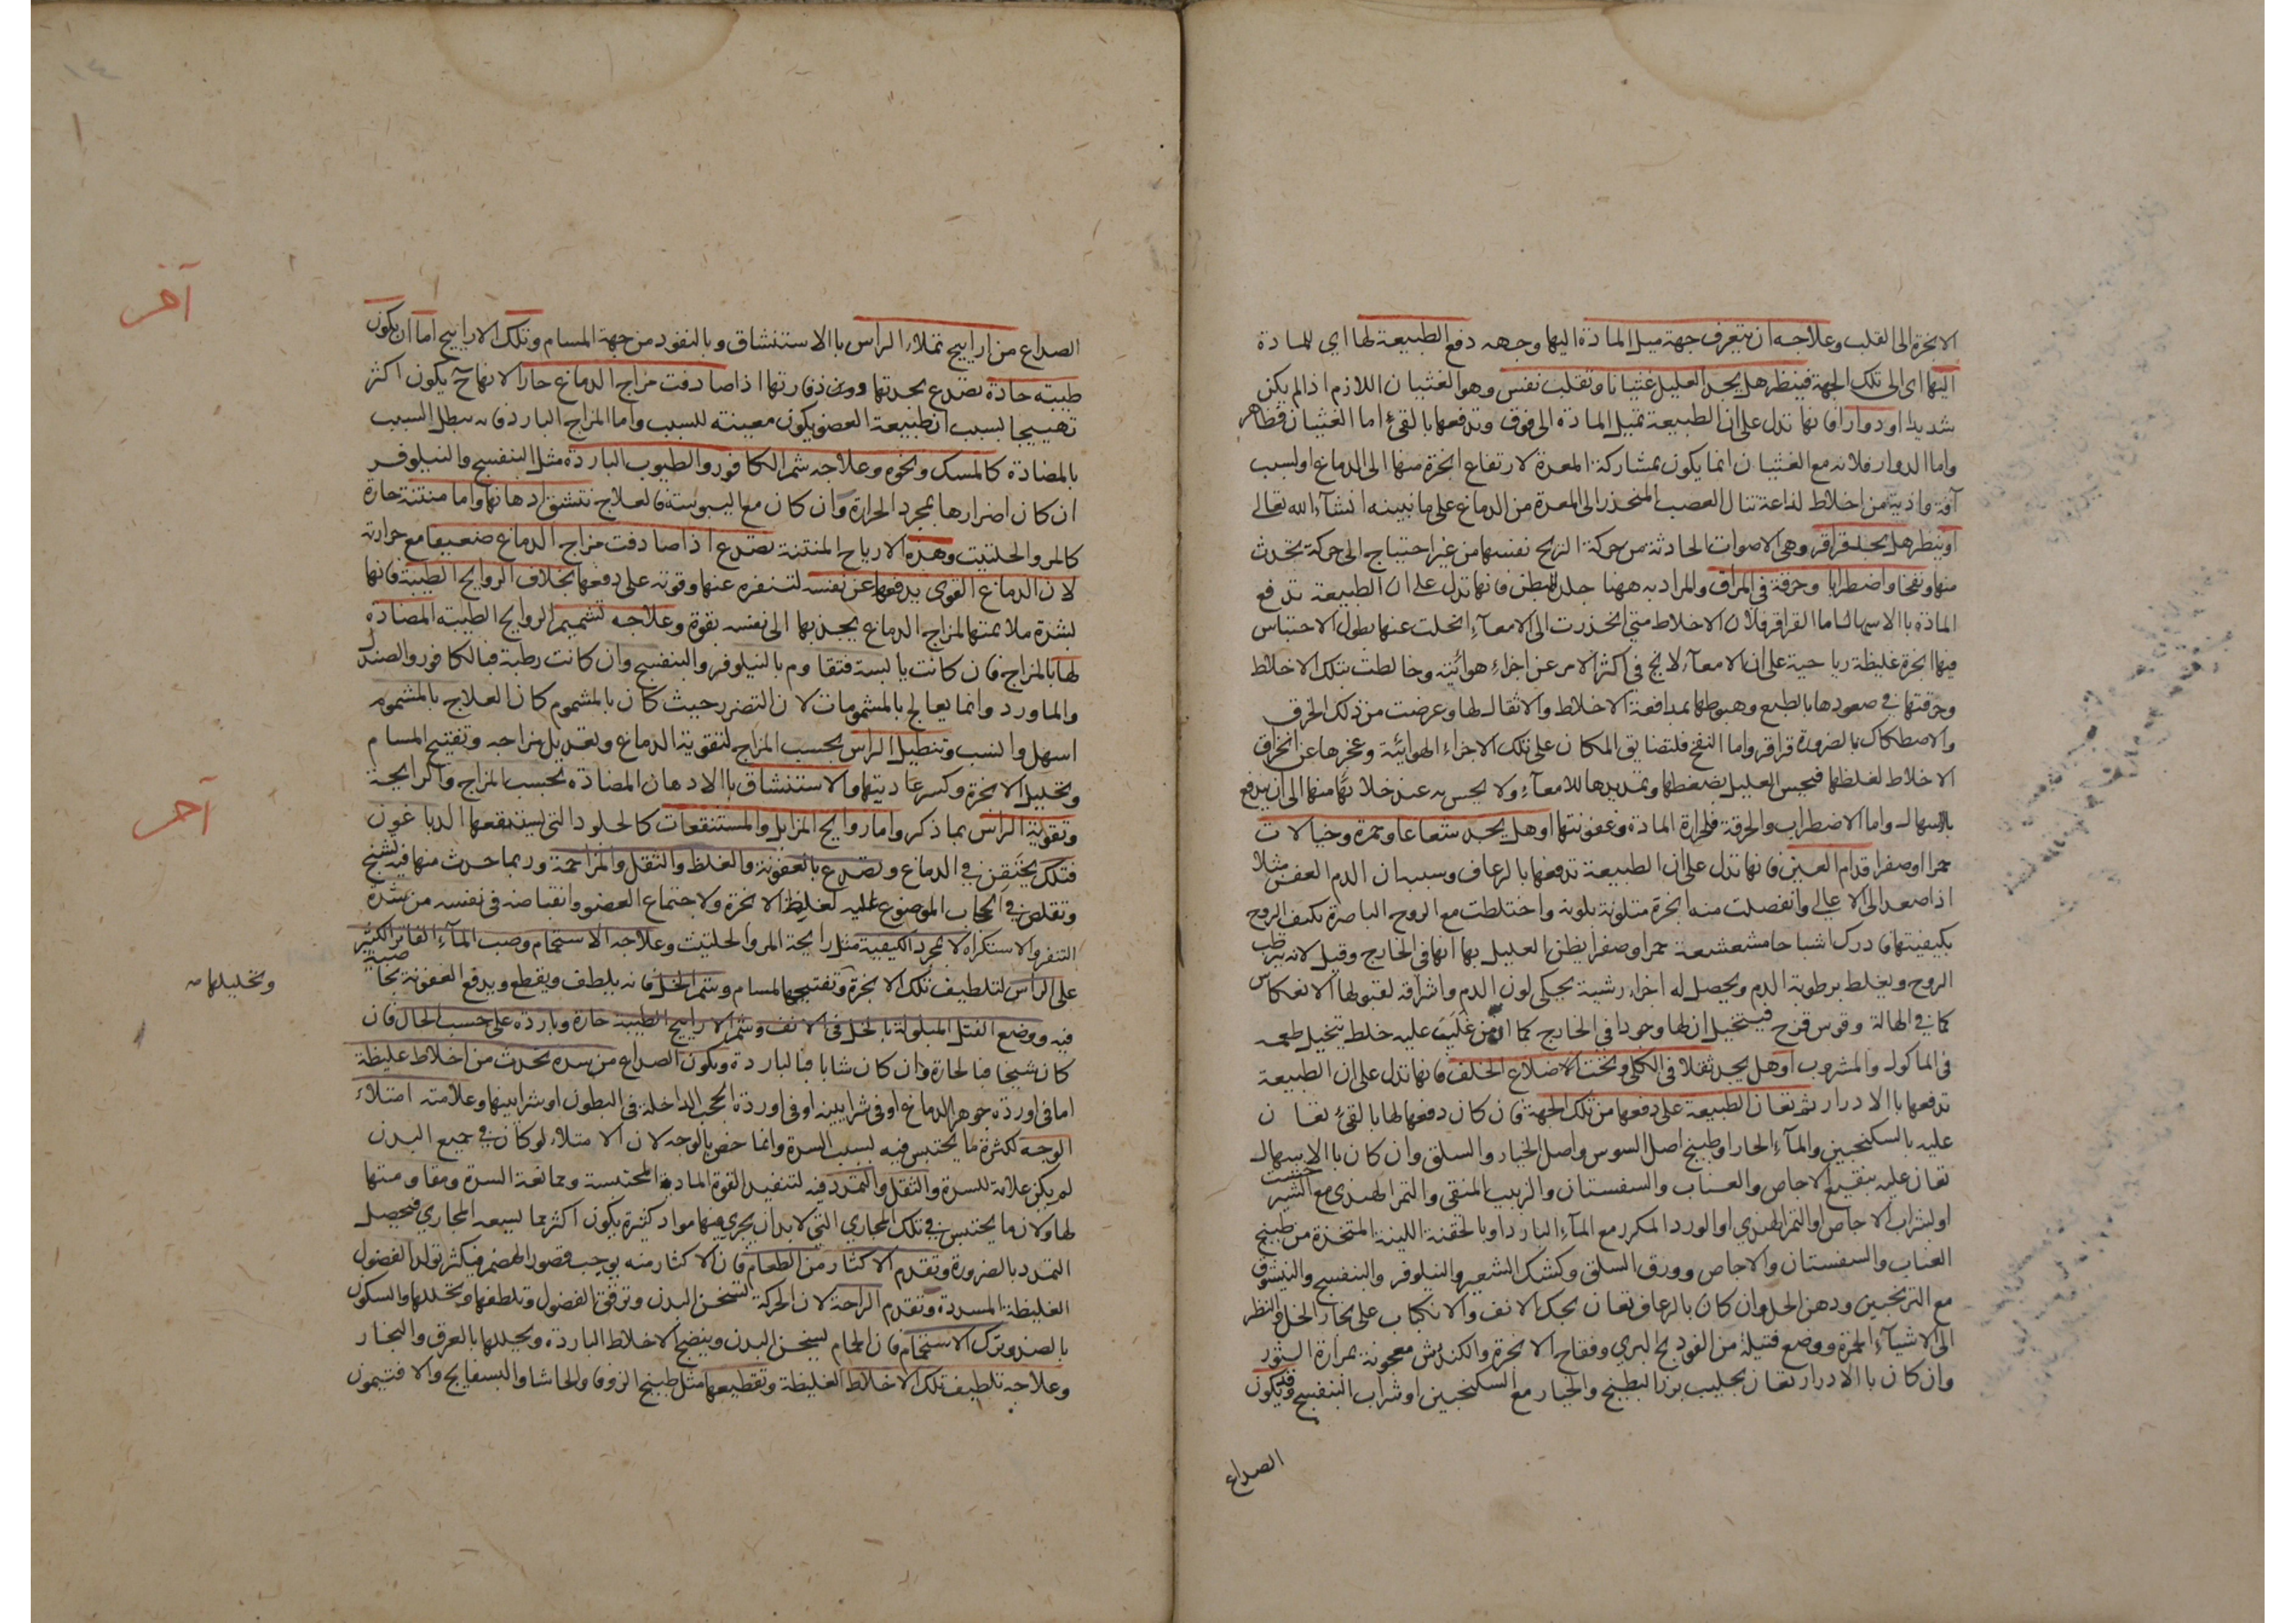 الابخرة الى القلب وعلاجه ان يتعرف جهة ميل المادة اليها وجهه دفع الطبيعة لها اى للمادة
اليها اى الى تلك الجهة فينظر هل يجد العليل غثيانا وتقلب نفس وهو الغثيان اللازم اذا لم يكن
شديدا او دوارا فانها تدل على ان الطبيعة تميل المادة الى فوق وتدفعها بالقئ اما الغثيان فظاهر
واما الدوار فلانه مع الغثيان انما يكون بمشاركة المعدة لارتفاع ابخرة منها الى الدماغ او لسبب
آفة واذية من اخلاط لذاعة تنال العصب المنحدر الى المعدة من الدماغ على ما نبينه انشآء الله تعالى
او ينظر هل يجد قراقر وهى الاصوات الحادثة من حركة الريح نفسها من غير احتياج الى حركة تحدث
منها ونفخا واضطرابا وحرقة في المراق والمراد به ههنا جلد البطن فانها تدل على ان الطبيعة تدفع
المادة بالاسهال اما القراقر فلان الاخلاط متى انحدرت الى الامعآء انحلت عنها بطول الاحتباس
فيها ابخرة غليظة رياحية على ان الامعآء لا تخ في اكثر الامر عن اجزاء هوائية وخالطت بتلك الاخلاط
وحرقتها في صعودها بالطبع وهبوطها بمدافعة الاخلاط والاثقال لها وعرضت من ذلك الخرق
والاصطكاك بالضرورة قراقر واما النفخ فلتضايق المكان على تلك الاجزاء الهوائية وعجزها عن انخراق
الاخلاط لغلظها فيحس العليل بضغطها وتمديدها للامعآء ولا يحس به عند خلائها منها الى ان يندفع
بالاسهال واما الاضطراب والحرقة فلحرارة المادة وعفونتها او هل يجد شعاعا وحمرة وخيالات
حمرا او صفرا قدام العين فانها تدل على ان الطبيعة تدفعها بالرعاف وسببه ان الدم العفن مثلا
اذا صعد الى الاعالي وانفصلت منه ابخرة متلونة بلونه واختلطت مع الروح الباصرة تكيف الروح
بكيفيتها فادرك اشباحا مشعشعة حمرا وصفرا يظن العليل بها انها في الخارج وقيل لانه يترطب
الروح ويغلظ برطوبة الدم ويحصل له اجزاء رشية يحكى لون الدم واشراقه لقبولها الانعكاس
كما في الهالة وقوس قزح فيتخيل ان لها وجودا في الخارج كما ان من غلب عليه خلط يتخيل طعمه
في الماكول والمشروب او هل يجد ثقلا في الكلى وتحت الاضلاع الخلف فانها تدل على ان الطبيعة
تدفعها بالادرار ثم تعان الطبيعة على دفعها من تلك الجهة فان كان دفعها لها بالقئ تعان
عليه بالسكنجبين والمآء الحار او طبيخ اصل السوس واصل الخيار والسلق وان كان بالاسهال
تعان عليه بنقيع الاجاص والعناب والسفستان والزبيب المنقى والتمر الهندى مع الشيرخشت
او بشراب الاجاص او التمر الهندي او الورد المكرر مع المآء البارد او بالحقنة اللينة المتخذة من طبيخ
العناب والسفستان والاجاص وورق السلق وكشك الشعير والنيلوفر والبنفسج
مع الترنجبين ودهن الحل وان كان بالرعاف تعان بحك الانف والانكباب على بخار الخل والنظر
الى الاشيآء الحمرة ووضع فتيلة من الفودنج البري وفقاح الاذخر والكندش معجونة بمرارة الثور
وان كان بالادرار تعان بحليب بزر البطيخ والخيار مع السكنجبين او شراب البنفسج وقد يكون
الصداع
الصداع من اراييح تملاء الراس بالاستنشاق وبالنفود من جهة المسام وتلك الاراييح اما ان يكون
طيبة حادة تصدع بحدتها اذا صادفت مزاج الدماغ حارا لانها ح يكون اكثر
تهييجا بسبب ان طبيعة العضو يكون معينة للسبب واما المزاج البارد فانه يبطل السبب
بالمضادة كالمسك ونحوه وعلاجه شم الكافور والطيوب الباردة مثل البنفسج والنيلوفر
ان كان اضرارها بمجرد الحرارة وان كان مع اليبوسة فالعلاج بتنشق ادهانها واما منتنة حارة
كالمر والحلتيت وهذه الارياح المنتنة تصدع اذا صادفت مزاج الدماغ ضعيفا مع حرارته
لان الدماغ القوى يدفعها عن نفسه لتنفره عنها وقوته على دفعها بخلاف الروايح الطيبة فانها
لشدة ملايمتها لمزاج الدماغ يجذبها الى نفسه بقوة وعلاجه تشميم الروايح الطيبة المضادة
لها بالمزاج فان كانت يابسة فتقاوم بالنيلوفر والبنفسج وان كانت رطبة فبالكافور والصندل
والماورد وانما يعالج بالمشمومات لان التضرر حيث كان بالمشموم كان العلاج بالمشموم
اسهل وانسب وتنطيل الراس بحسب المزاج لتقوية الدماغ وتعديل مزاجه وتفتيح المسام
وتحليل الابخرة وكسر عاديتها والاستنشاق بالادهان المضادة بحسب المزاج والرايحة
وتقوية الراس بما ذكر واما روايح المزابل والمستنقعات كالجلود التي يستنقعها الدباغون
فتلك يحتقن في الدماغ وتصدع بالعفونة والغلظ والثقل والمزاحمة وربما حدث منها فيه تشنج
وتقلص في الحجاب الموضوع عليه لغليظ الابخرة ولاجتماع العضو وانقباضه في نفسه من شدة
التنفر والاستكراه لا بمجرد الكيفية مثل رايحة المر والحلتيت وعلاجه الاستحمام وصب المآء الفاتر الكثير
على الراس لتلطيف تلك الابخرة وتفتيحها المسام وشم الخل فانه يلطف ويقطع ويدفع العفونة بخاصية
وتحليلها
فيه ووضع الفتل المبلولة بالخل في الانف وشم الاراييح الطيبة حارة وباردة على حسب الحال فان
كان شيخا فبالحارة وان كان شابا فبالباردة ويكون الصداع من سدة تحدث من اخلاط غليظة
اما في اوردة جوهر الدماغ او في شرايينه او في اوردة الحجب الداخلة في البطون او شرايينها وعلامته امتلاء
الوجه لكثرة ما يحتبس فيه بسبب السدة وانما خص بالوجه لان الامتلاء لو كان في جميع البدن
لم يكن علامة للسدة والثقل والتمدد فيه لتنفيد القوة المادة المحتبسة وممانعة السدة ومقاومتها
لها ولان ما يحتبس في تلك المجاري التي لا بد ان يجري فيها مواد كثيرة يكون اكثر مما يسعه المجاري فيحصل
التمدد بالضرورة وتقدم الاكثار من الطعام فان الاكثار منه يوجب قصور الهضم فيكثر تولد الفضول
الغليظة المسددة وتقدم الراحة لان الحركة تسخن البدن وترقق الفضول وتلطفها وتحللها والسكون
بالضد وترك الاستحمام فان الحمام يسخن البدن وينضج الاخلاط الباردة ويحللها بالعرق والبخار
وعلاجه تلطيف تلك الاخلاط الغليظة وتقطيعها مثل طبيخ الزوفا والحاشا والبسفايج والافتيمون
آخر
آخر
١٤